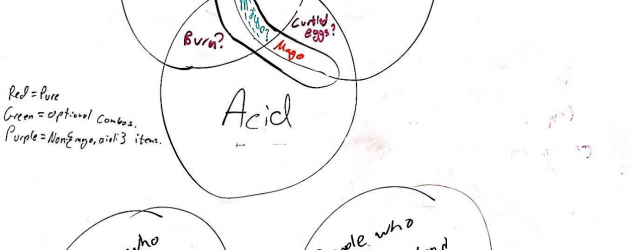 Curtled
eggs?
Burn?
Mayo
Acid
Red = Pure
Green = optional combos.
Purple = Non{mayo, aioli} items.
who
who